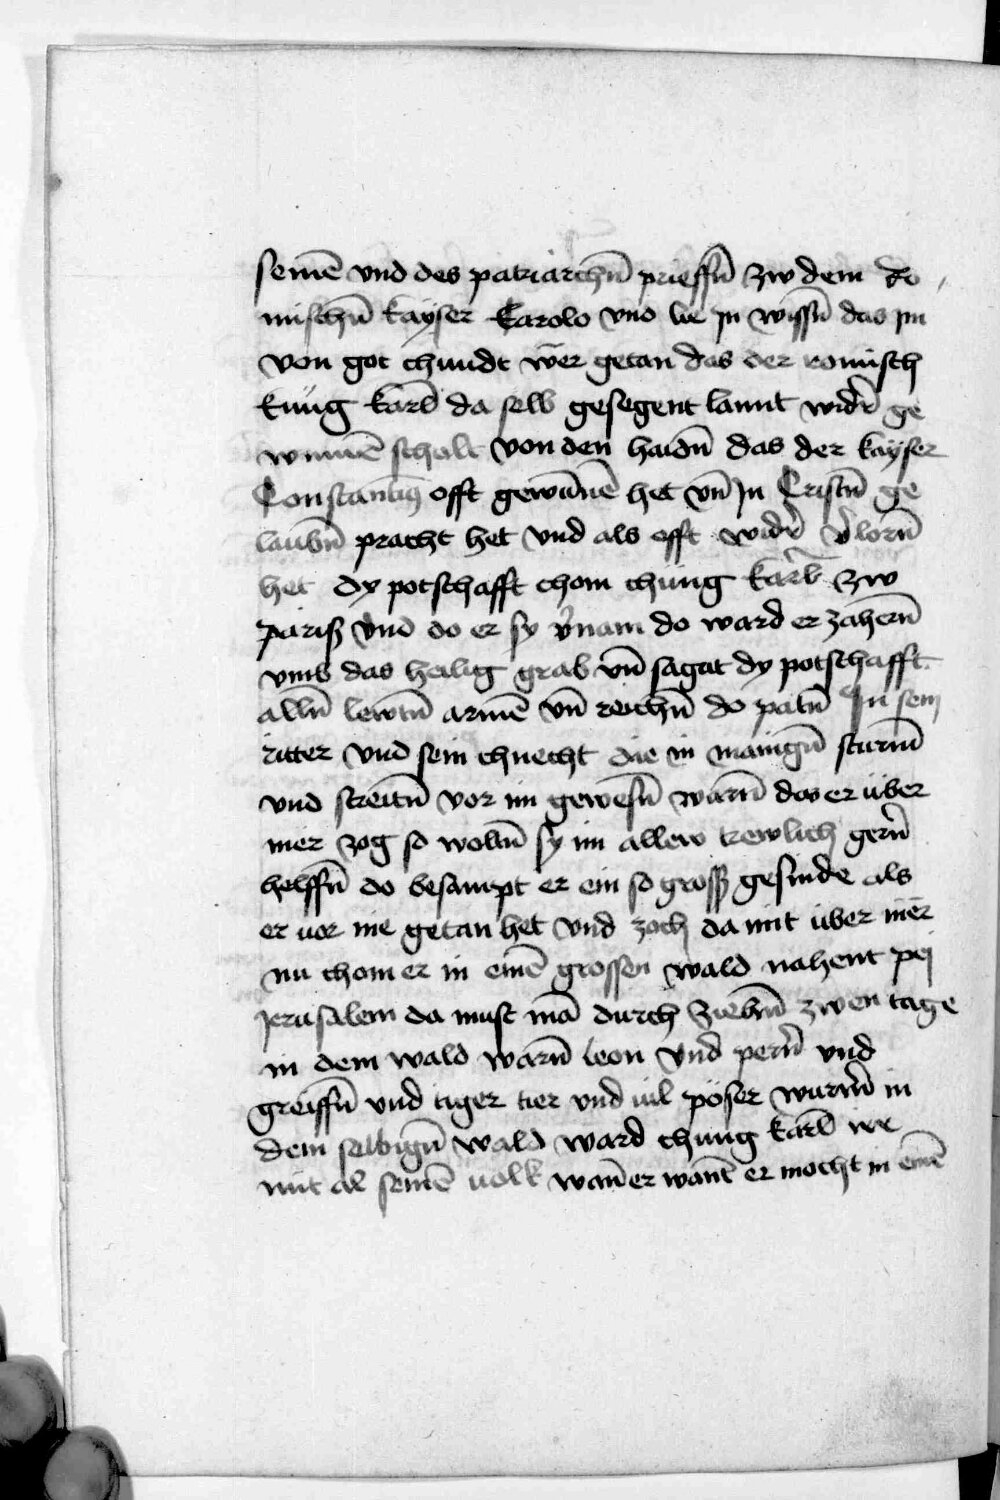 seinē vnd des patriarchn̄ prieffn̄ zw dem Ro
mischn̄ kayser Karolo vnd lie jn wissn̄ das jm
von got chundt wēr getan das der romisch
kung karl da selb gesegent lannt widr̄ ge
winnē scholt von den haidn̄ das der kayser
Constantiꝯ offt gewunnē het vn̄ jn Cristn̄ ge
laubn̄ pracht het vnd als offt widr̄ v̄lorn̄
het dy potschafft chom chung karl zw
pariß vnd do er sy v̄nam do ward er zahern̄
vmb das heilig grab vn̄ sagat dy potschafft
alln̄ lewtn̄ armē vn̄ reichn̄ do patn̄ Jn sein
ritter vnd sein chnecht die in manign̄ sturm̄
vnd streitn̄ vor im gewesn̄ warn̄ das er über
mer zog so woltn̄ sy im allew trewlich gern̄
helffn̄ do besampt er ein so groß gesinde als
er uor nie getan het vnd zoch da mit über mēr
nu chom er in einē grossen wald nahent pej
jerusalem da must mā durch ziehn̄ zwen tage
in dem wald warn̄ leon vnd pern̄ vnd
greiffn̄ vnd tiger tier vnd uil pöser wurm̄ in
dem selbign̄ wald ward chung karl irr
mit al seinē uolk wan̄ er want er mocht in einē